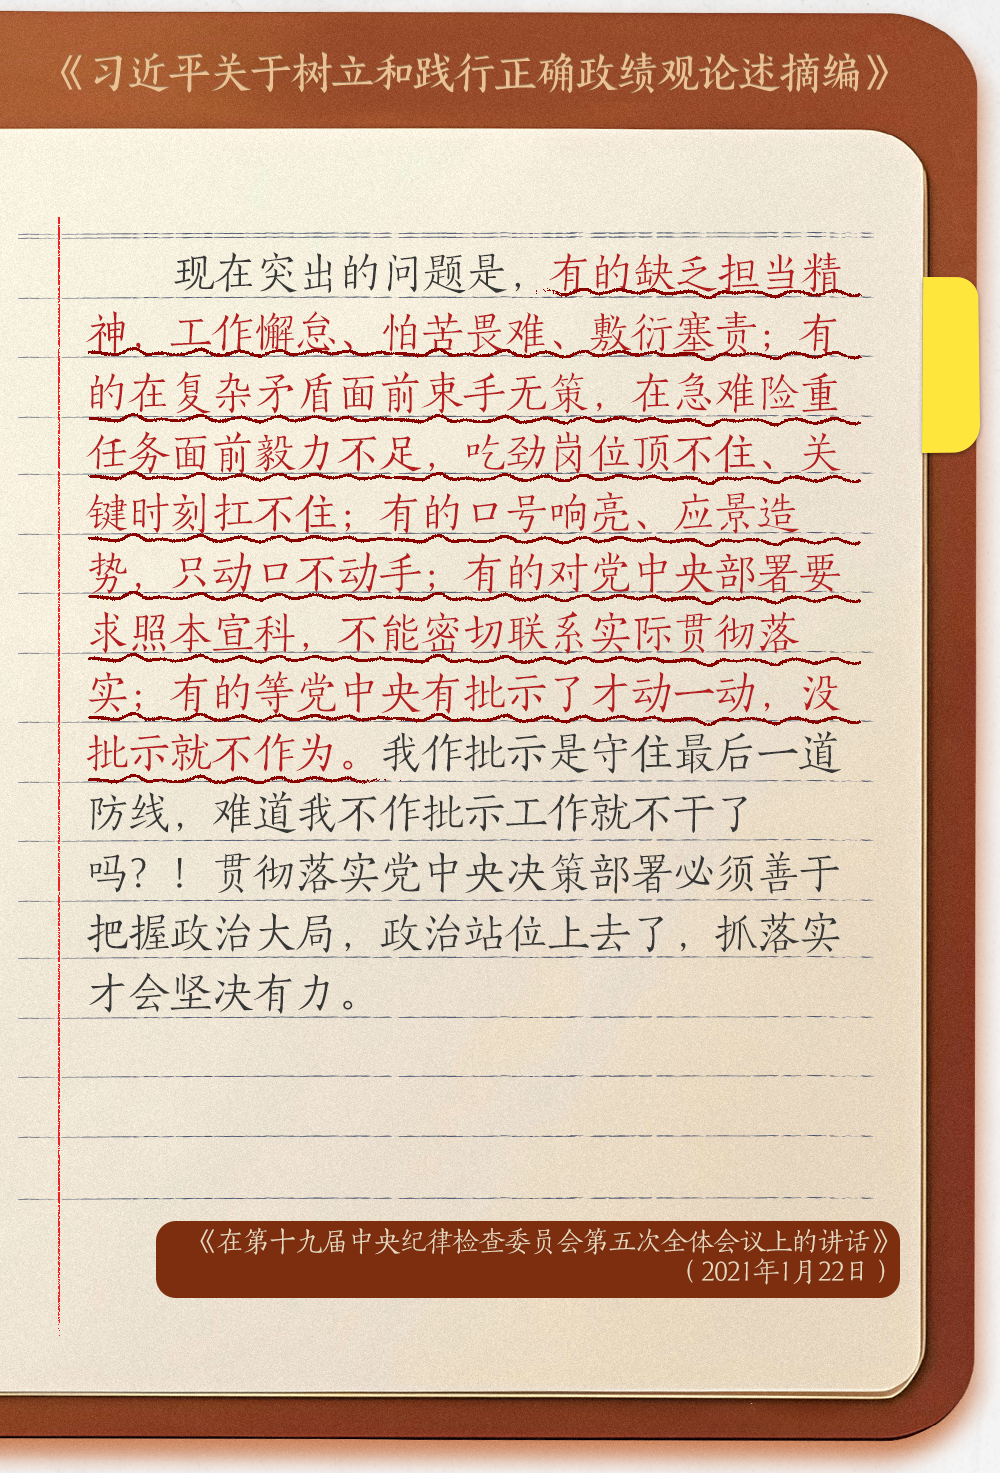 《习近平关于树立和践行正确政绩观论述摘编》
现在突出的问题是，有的缺乏担当精
神，工作懈怠、怕苦畏难、敷衍塞责；有
的在复杂矛盾面前束手无策，在急难险重
任务面前毅力不足，吃劲岗位顶不住、关
键时刻扛不住；有的口号响亮、应景造
势，只动口不动手；有的对党中央部署要
求照本宣科，不能密切联系实际贯彻落
实；有的等党中央有批示了才动一动，没
批示就不作为。我作批示是守住最后一道
防线，难道我不作批示工作就不干了
吗？！贯彻落实党中央决策部署必须善于
把握政治大局，政治站位上去了，抓落实
才会坚决有力。
《在第十九届中央纪律检查委员会第五次全体会议上的讲话》
（2021年1月22日）